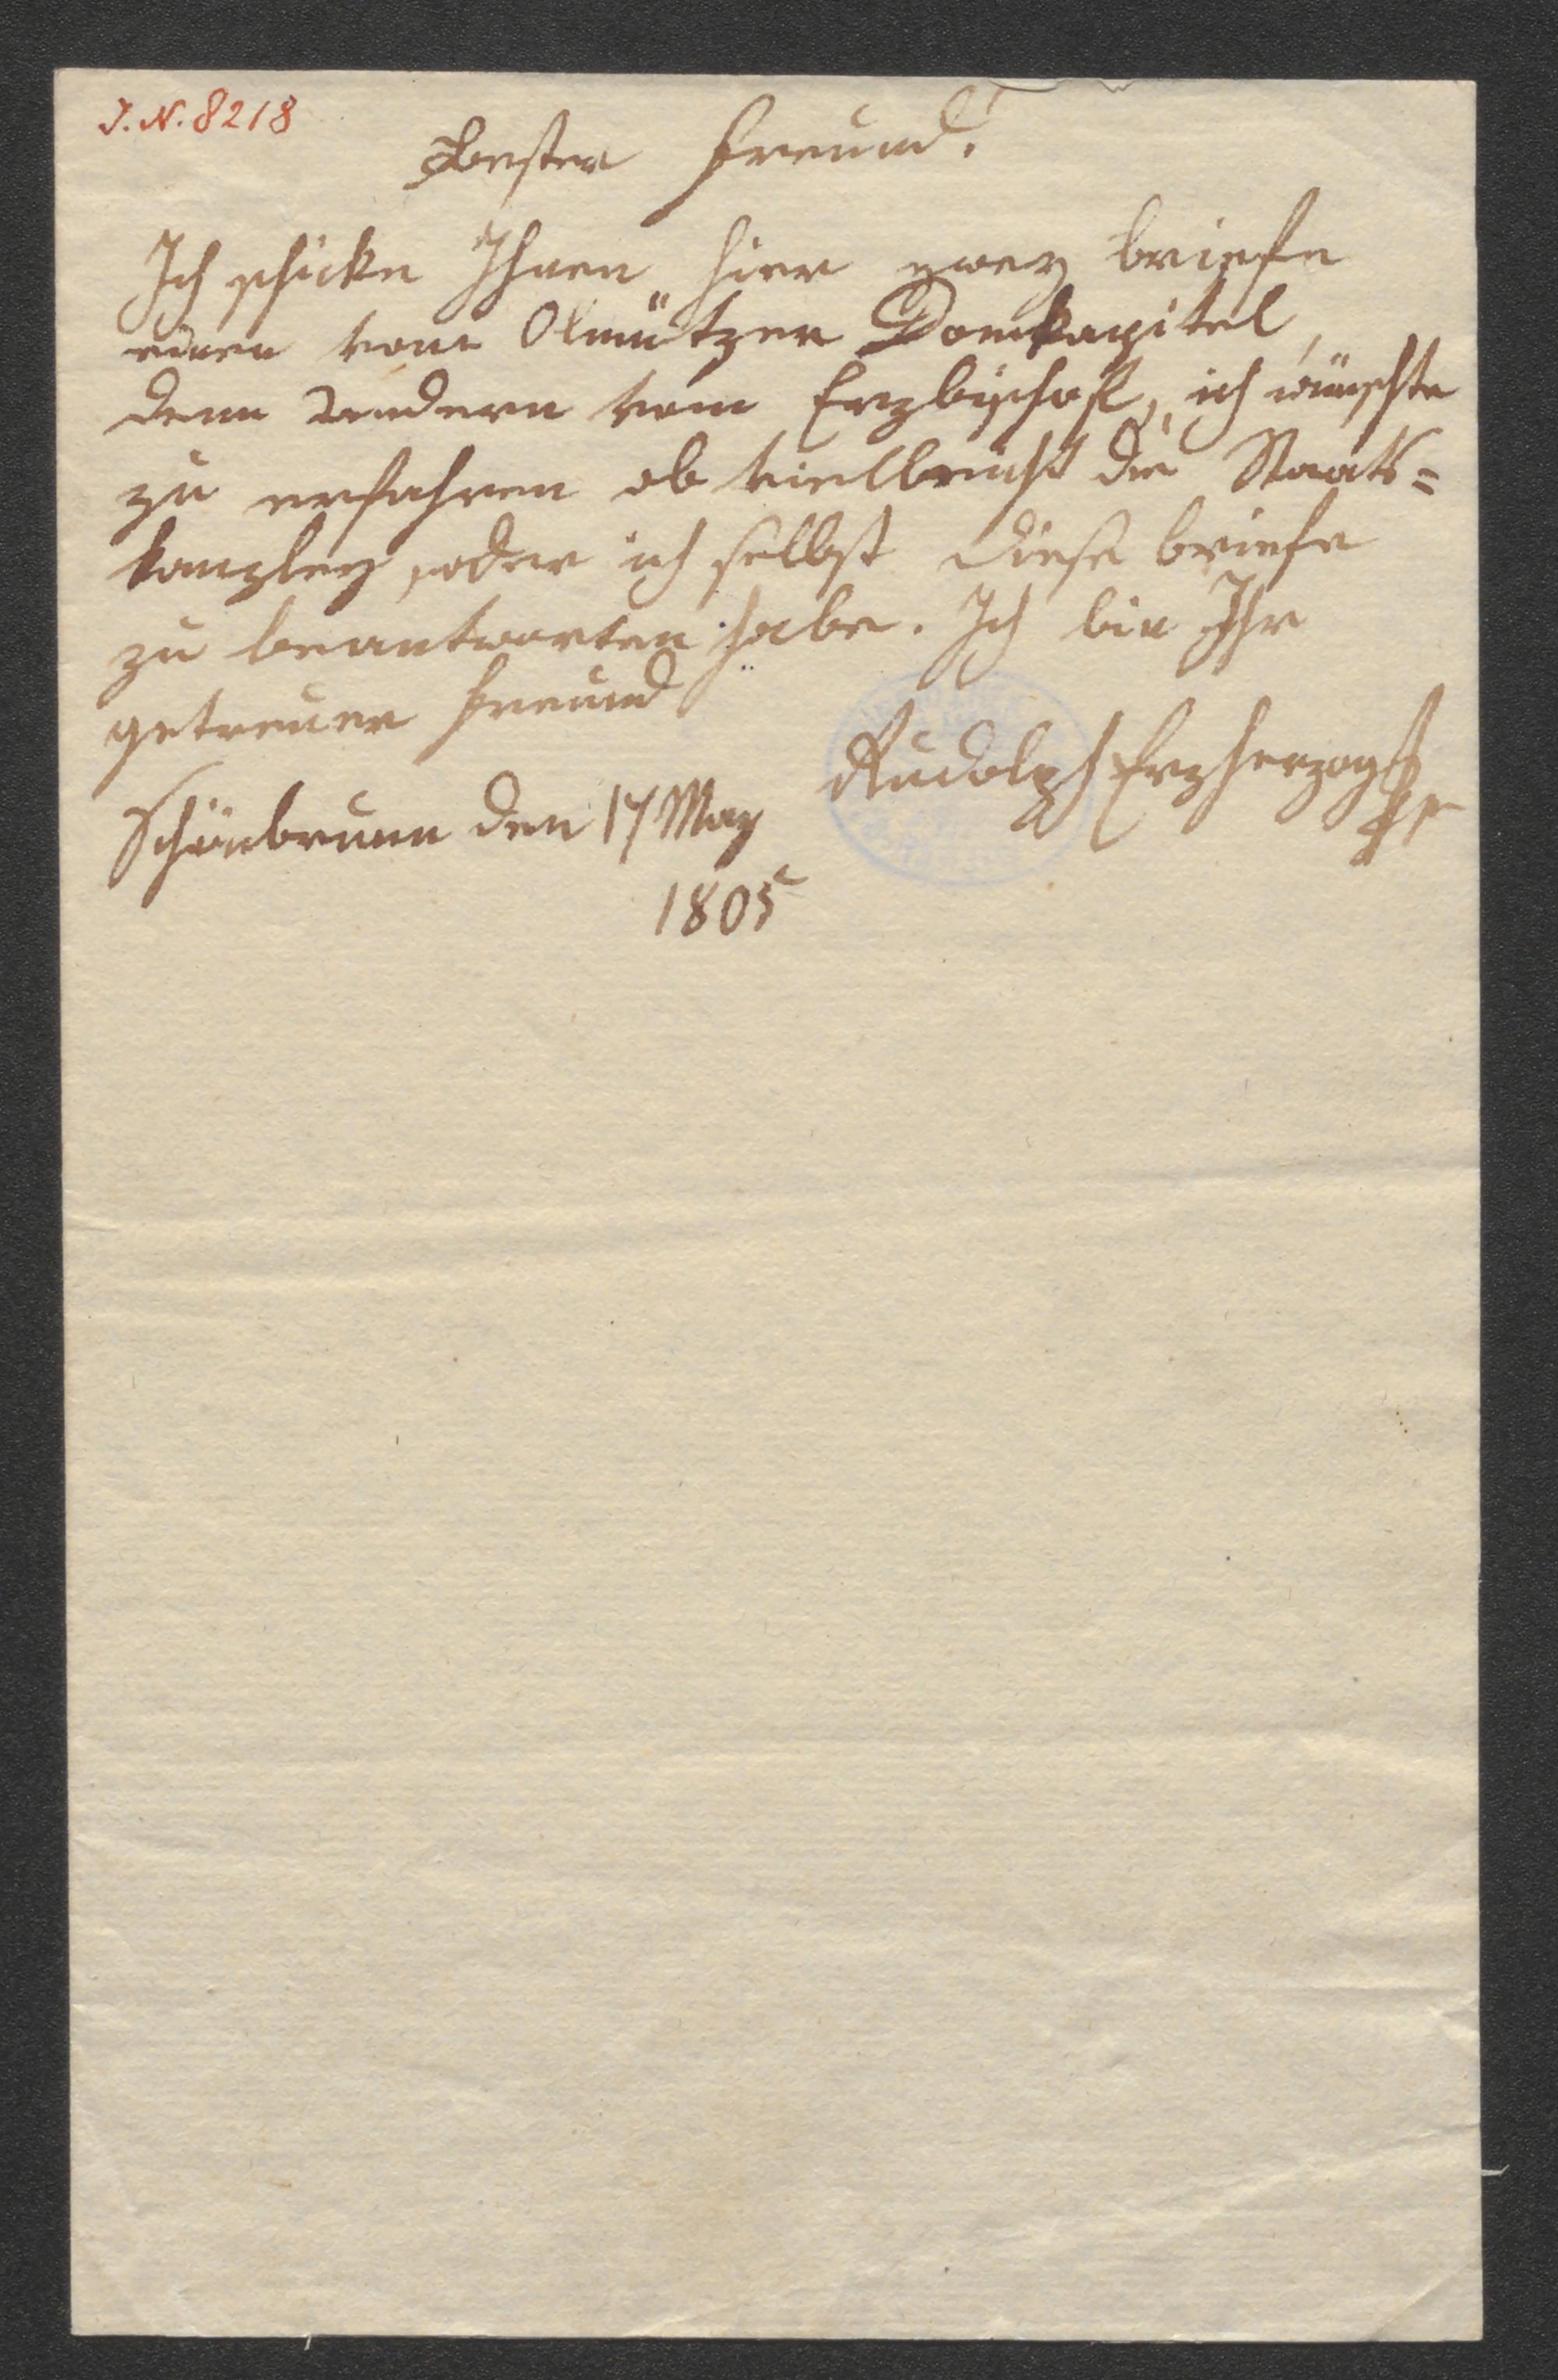 J. N. 8218
Bester Freund!
Ich schicke Ihnen hier zwey briefe
einen vom Olmützer Domkapitel,
denn andern vom Erzbischof, ich wünschte
zu erfahren ob vielleicht die Staats=
kanzley, oder ich selbst diese briefe
zu beantworten habe. Ich bin Ihr
getreuer Freund
Rudolph Erzherzog
Schönbrunn den 17 May
1805